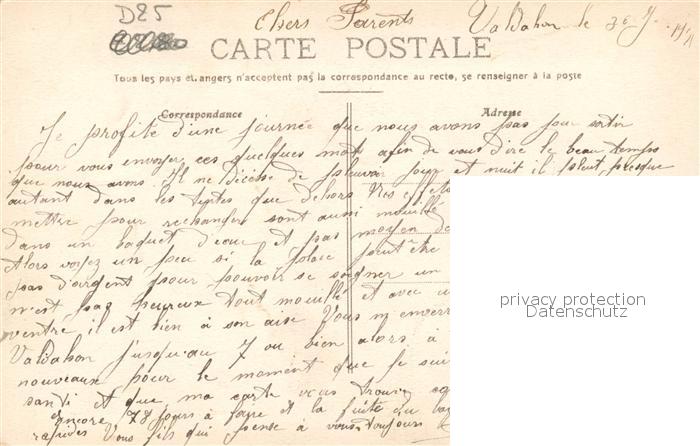 D25
Chers Parents Valdahon le 30
CARTE POSTALE
Tous les pays étrangers n'acceptent pas la correspondance au recto, se renseigner à la poste
Correspondance
Adresse
Je profite d'une journée que nous avons pas pour sortir
pour vous envoyer ces quelques mots afin de vous dire le beau temps
que nous avons. Il ne décesse de pleuvoir jour et nuit il pleut presque
autant dans les tentes que dehors
mettre pour rechanger sont aussi mouillé
dans un baquet d'eau et pas moyen de
Alors voyez un peu si la place peut être
pas d'argent pour pouvoir se soigner un
n'est pas heureux tout mouillé et avec
ventre il est bien à son aise Vous m'enverr
Valdahon jusqu'au 7 ou bien alors à
nouveaux pour le moment que je suis
santé et que ma carte vous trouve
encore 78 jours à faire et la fuite du
rapides Vous fils qui pense à vous toujours
privacy protection
Datenschutz